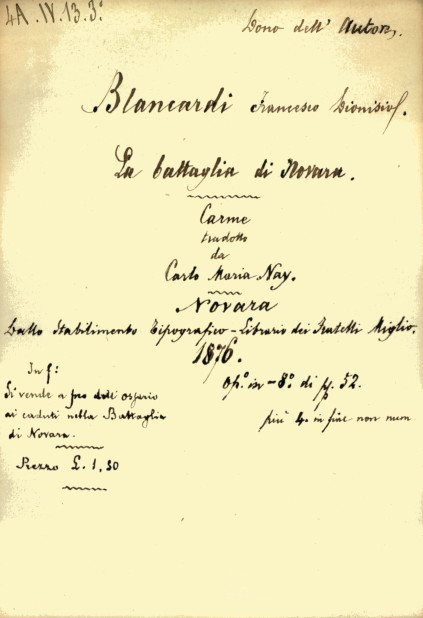 4A. IV. 13. 3º
Dono dell' Autore.
Blancardi Francesco Dionisio.
La battaglia di Novara.
Carme
tradotto
da
Carlo Maria Nay.
Novara
Dallo Stabilimento Tipografico-Librario dei Fratelli Miglio.
1876.
Op.º in-8.º di pp. 52.
più 4 in fine non num
In f:
Si vende a pro dell' ossario
ai caduti nella Battaglia
di Novara.
Prezzo £. 1,50